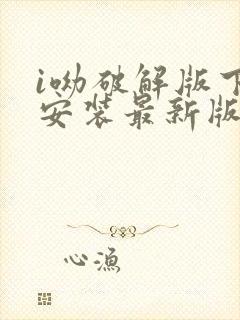 i呦破解版下
安装最新版
心渔